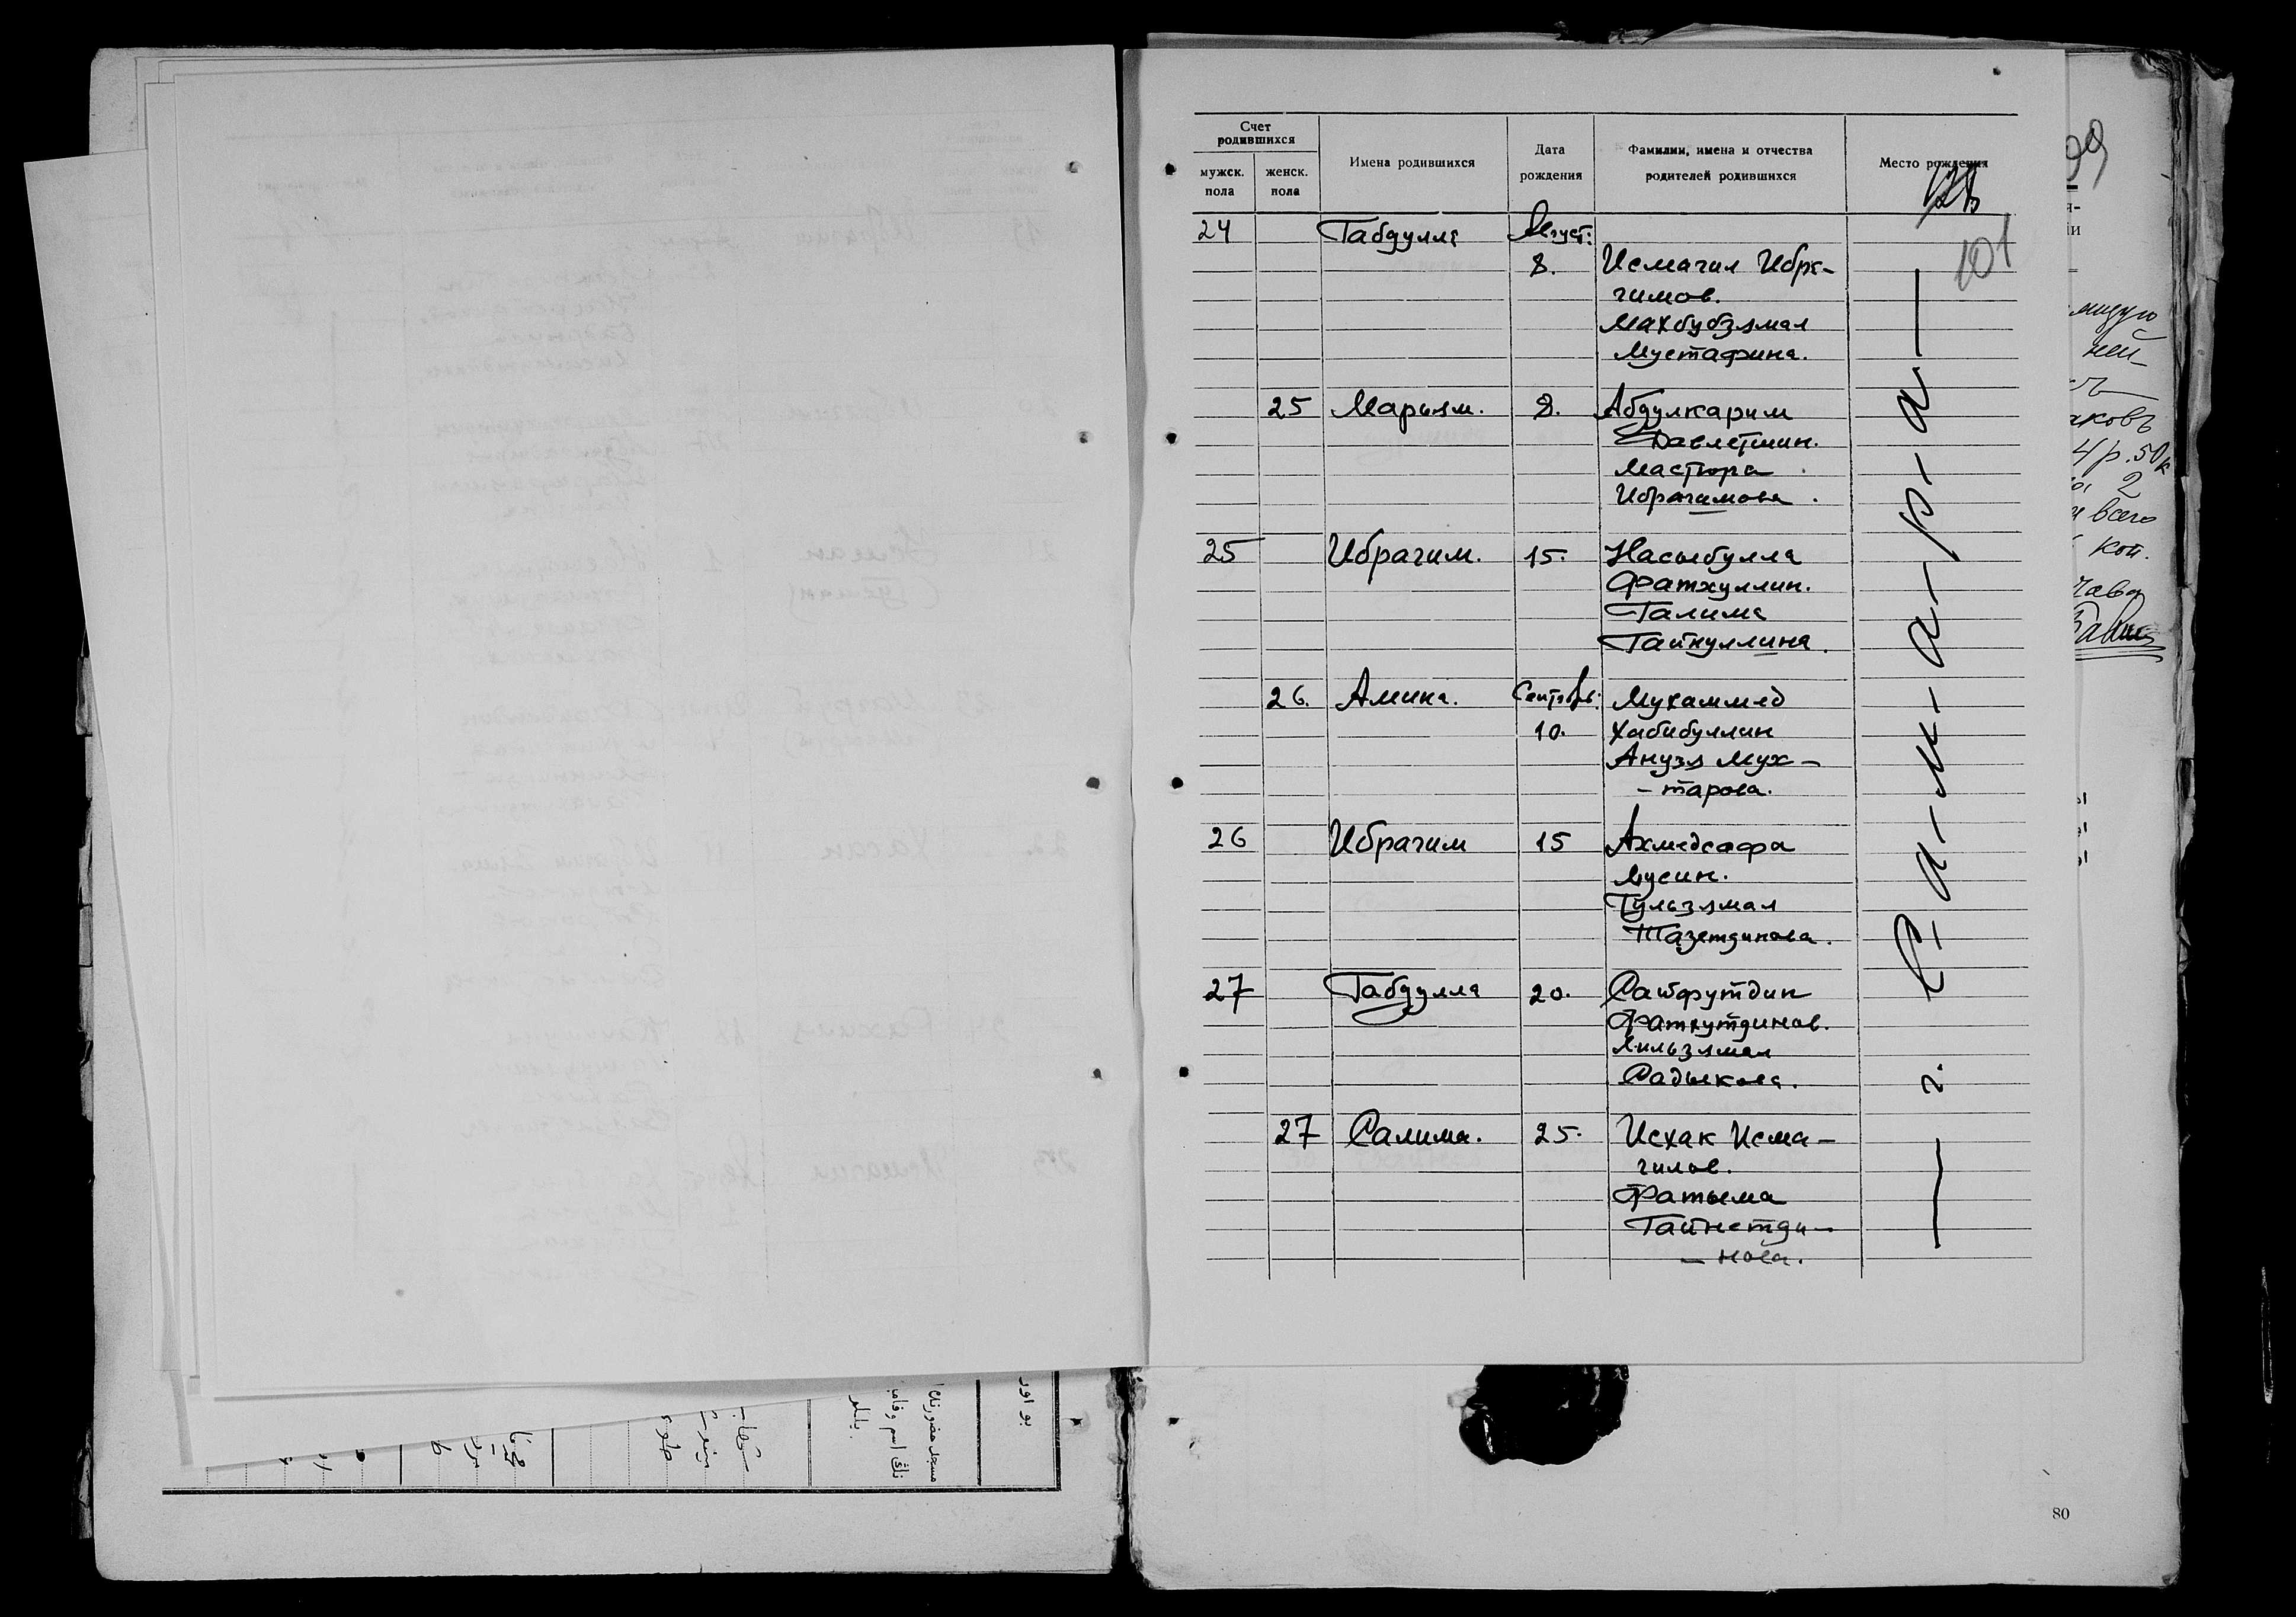 Счет
родившихся
Имена родившихся
Дата
рождения
Фамилии, имена и отчества
родителей родившихся
Место рождения
мужск.
пола
женск.
пола
101
24 Габдулла Август: 8. Исмагил Ибра-
гимов.
Махбубзямал
Мустафина.
25 Марьям. 8. Абдулкарим
Давлетшин.
Мастюра
Ибрагимова.
25 Ибрагим. 15. Насыбулла
Фатхуллин.
Галима
Гайнуллина.
26. Амина. Сентябрь: 10. Мухаммед
Хабибуллин
Анузя Мух-
-тарова.
26 Ибрагим 15 Ахмедсафа
Мусин.
Гульзямал
Тазетдинова.
27 Габдулла 20. Сайфутдин
Фатхутдинов.
Садыкова.
27 Салима. 25. Исхак Исма-
гилов.
Фатыма
Гайнетди-
-нова.
— г. С-а-м-а-р-а —
мидую
ней-
аковъ
4р.50к
2
всего
коп.
80